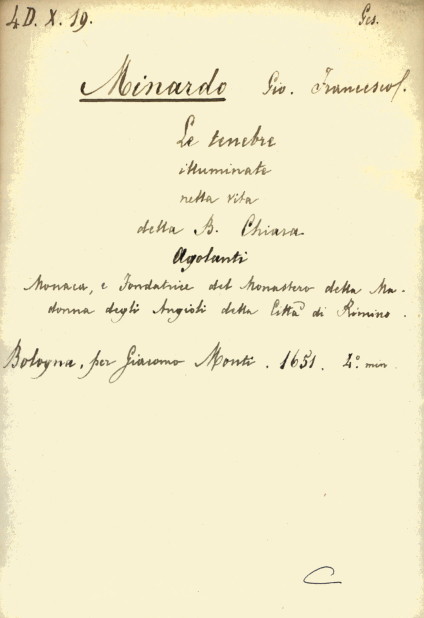 4 D. X. 19. Ges.
Minardo Gio. Francesco
Le tenebre
illuminate
nella vita
della B. Chiara
Agolanti
Monaca, e Fondatrice del Monastero della Ma-
donna degli Angioli della Città di Rimino.
Bologna, per Giacomo Monti. 1651. 4.° min
C